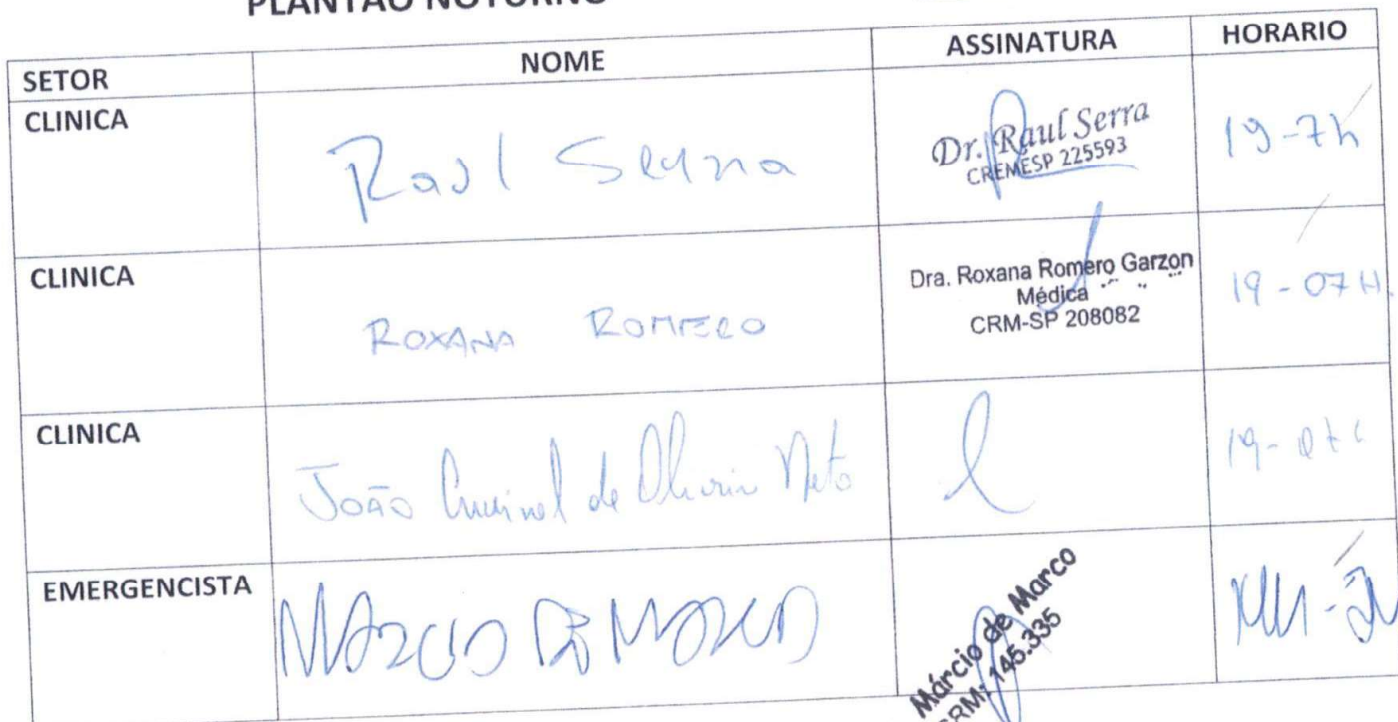 PLANTÃO NOTURNO
SETOR NOME ASSINATURA HORARIO
CLINICA Raul Serra Dr. Raul Serra 19-7h
CREMESP 225593
CLINICA ROXANA ROMERO Dra. Roxana Romero Garzon 19-07H.
Médica
CRM-SP 208082
CLINICA João de Oliveira Neto 19-07
EMERGENCISTA MARCIO DE MARCO Márcio de Marco
CRM: 145.335